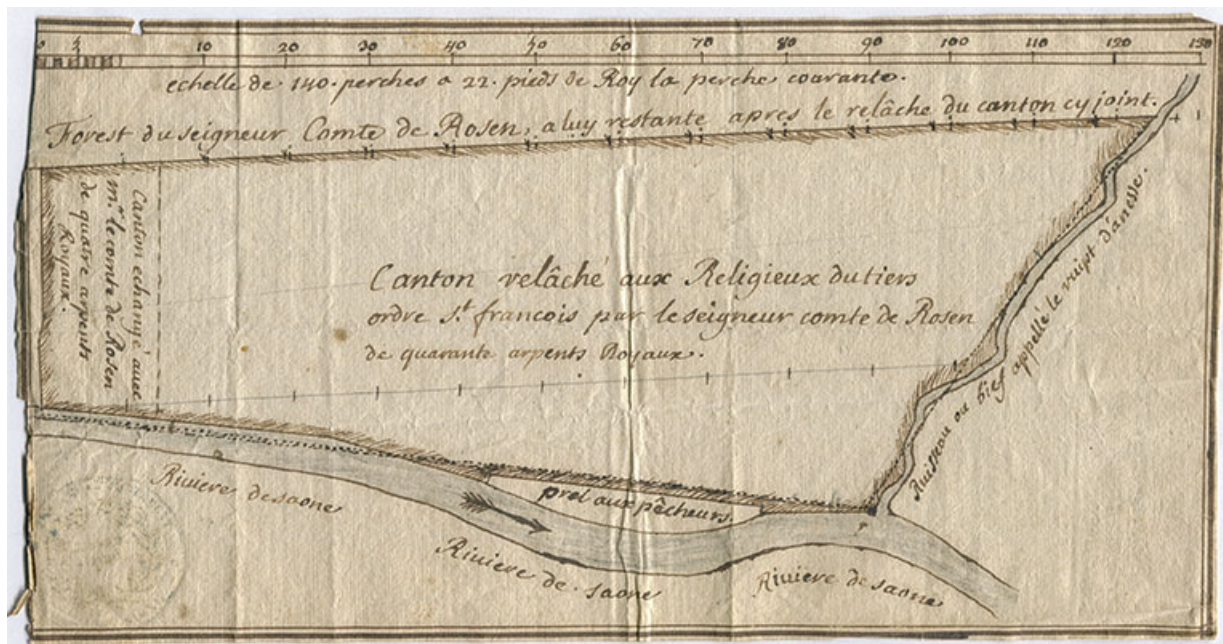 0 5 10 20 30 40 50 60 70 80 90 100 110 120 130
echelle de 140. perches a 22. pieds de Roy la perche courante.
Forest du seigneur Comte de Rosen, a luy restante apres le relâche du canton cy joint.
Canton echangé avec
mr. le comte de Rosen
de quatre arpents
Royaux.
Canton relâché aux Religieux du tiers
ordre St. francois par le seigneur comte de Rosen
de quarante arpents Royaux.
Ruisseau ou bief appellé le vuipt d'anesse.
prel aux pêcheurs.
Riviere de saone
Riviere de saone
Riviere de saone